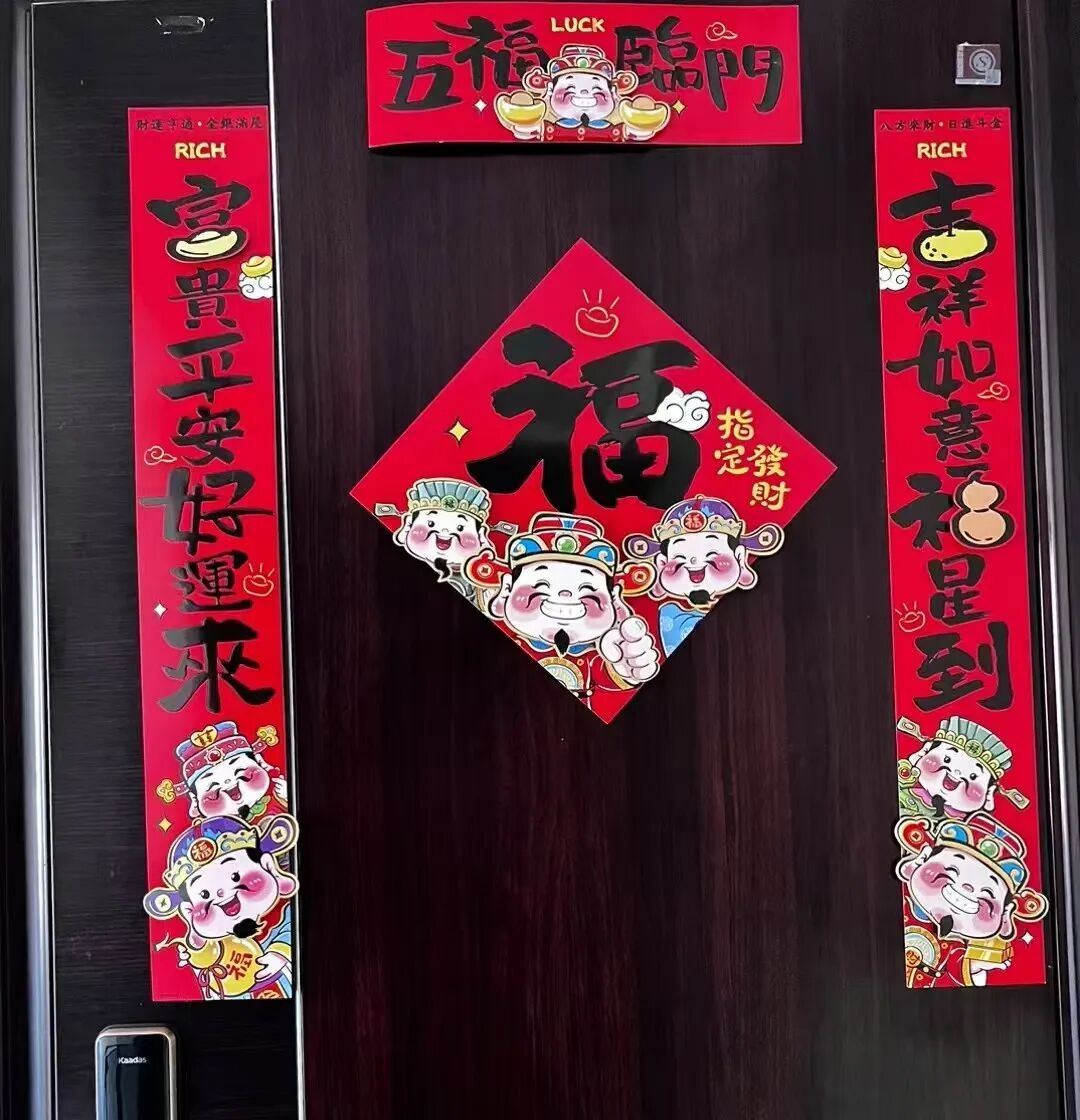 LUCK
五福臨門
八方來財•日進斗金
RICH
吉祥如意福星到
財運亨通•金銀滿屋
RICH
富貴平安好運來
福
指定
發財
福
福
福
福
福
Kaadas